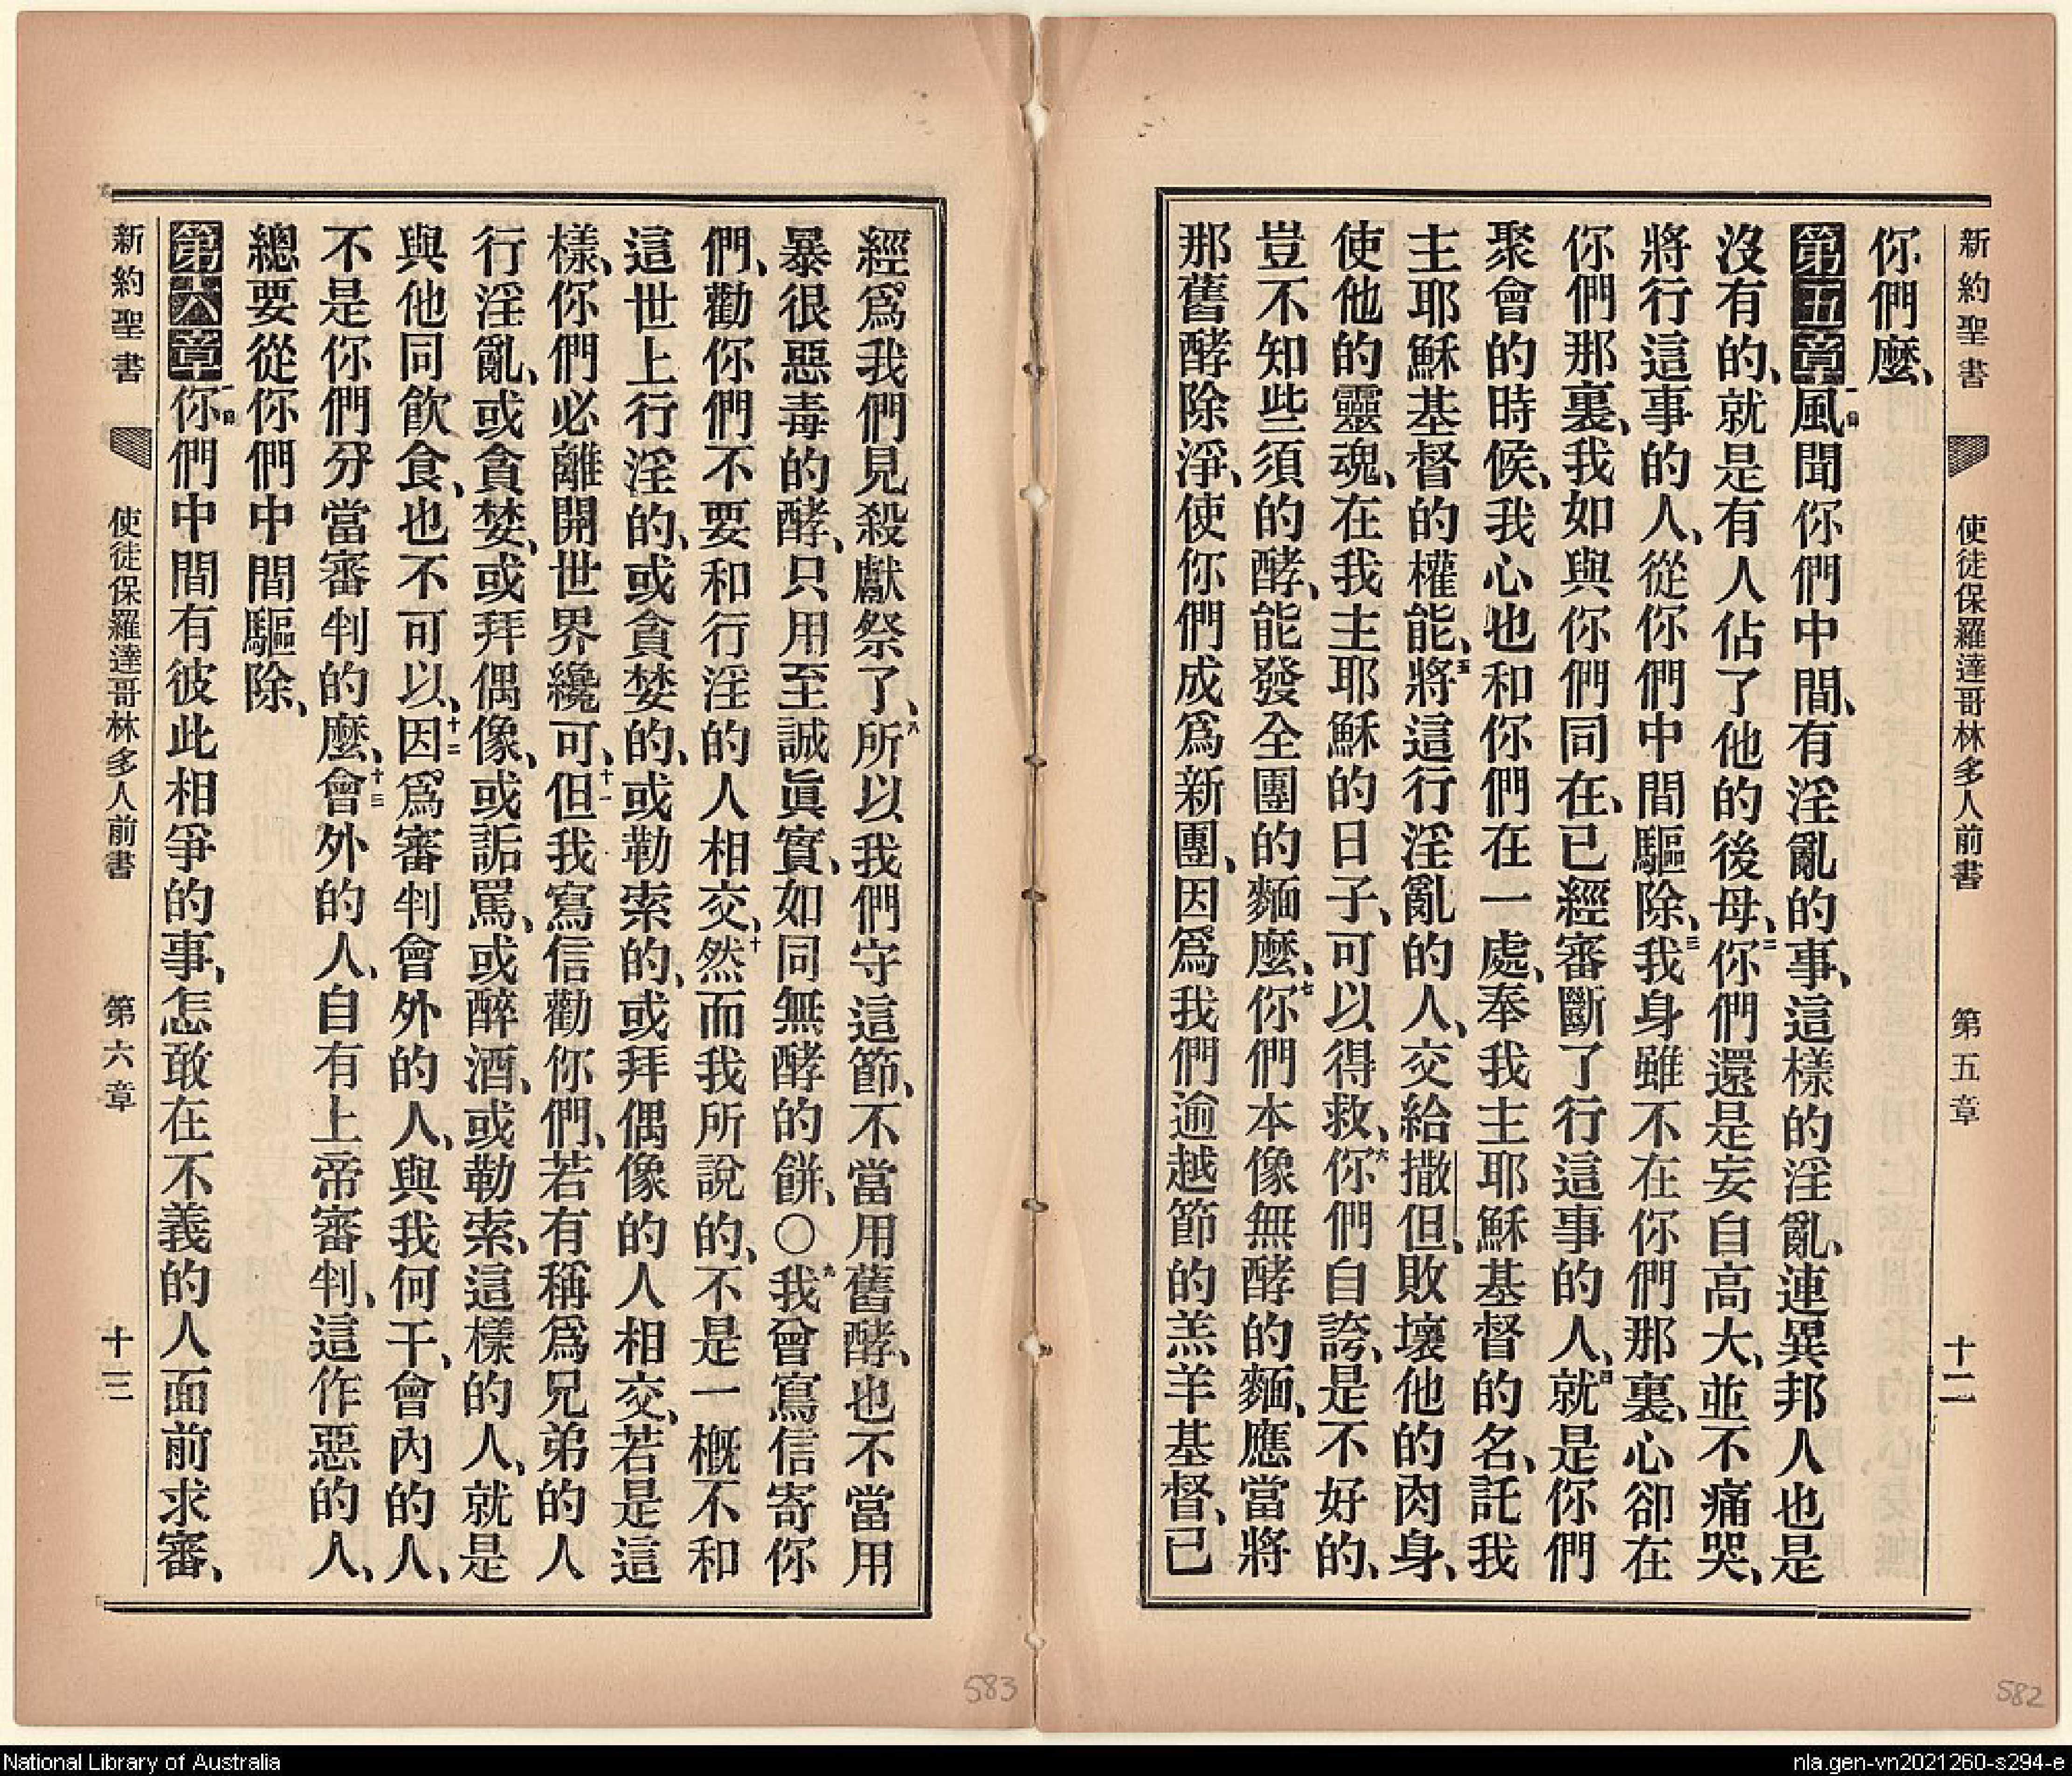 新約聖書 使徒保羅達哥林多人前書 第五章 十二
你們麼、
第五章一節風聞你們中間、有淫亂的事、這樣的淫亂、連異邦人也是
沒有的、就是有人佔了他的後母、二你們還是妄自高大、並不痛哭、
將行這事的人、從你們中間驅除、三我身雖不在你們那裏、心卻在
你們那裏、我如與你們同在、已經審斷了行這事的人、四就是你們
聚會的時候、我心也和你們在一處、奉我主耶穌基督的名、託我
主耶穌基督的權能、五將這行淫亂的人、交給撒但、敗壞他的肉身、
使他的靈魂、在我主耶穌的日子、可以得救、六你們自誇、是不好的、
豈不知些須的酵、能發全團的麵麼、七你們本像無酵的麵、應當將
那舊酵除淨、使你們成爲新團、因爲我們逾越節的羔羊基督、已
經爲我們見殺獻祭了、八所以我們守這節、不當用舊酵、也不當用
暴很惡毒的酵、只用至誠眞實、如同無酵的餅、○九我曾寫信寄你
們、勸你們不要和行淫的人相交、十然而我所說的、不是一概不和
這世上行淫的、或貪婪的、或勒索的、或拜偶像的人相交、若是這
樣、你們必離開世界纔可、十一但我寫信勸你們、若有稱爲兄弟的人
行淫亂、或貪婪、或拜偶像、或詬罵、或醉酒、或勒索、這樣的人、就是
與他同飲食、也不可以、十二因爲審判會外的人、與我何干、會內的人、
不是你們分當審判的麼、十三會外的人、自有上帝審判、這作惡的人、
總要從你們中間驅除、
第六章一節你們中間有彼此相爭的事、怎敢在不義的人面前求審、
新約聖書 使徒保羅達哥林多人前書 第六章 十三
583
582
National Library of Australia
nla.gen-vn2021260-s294-e